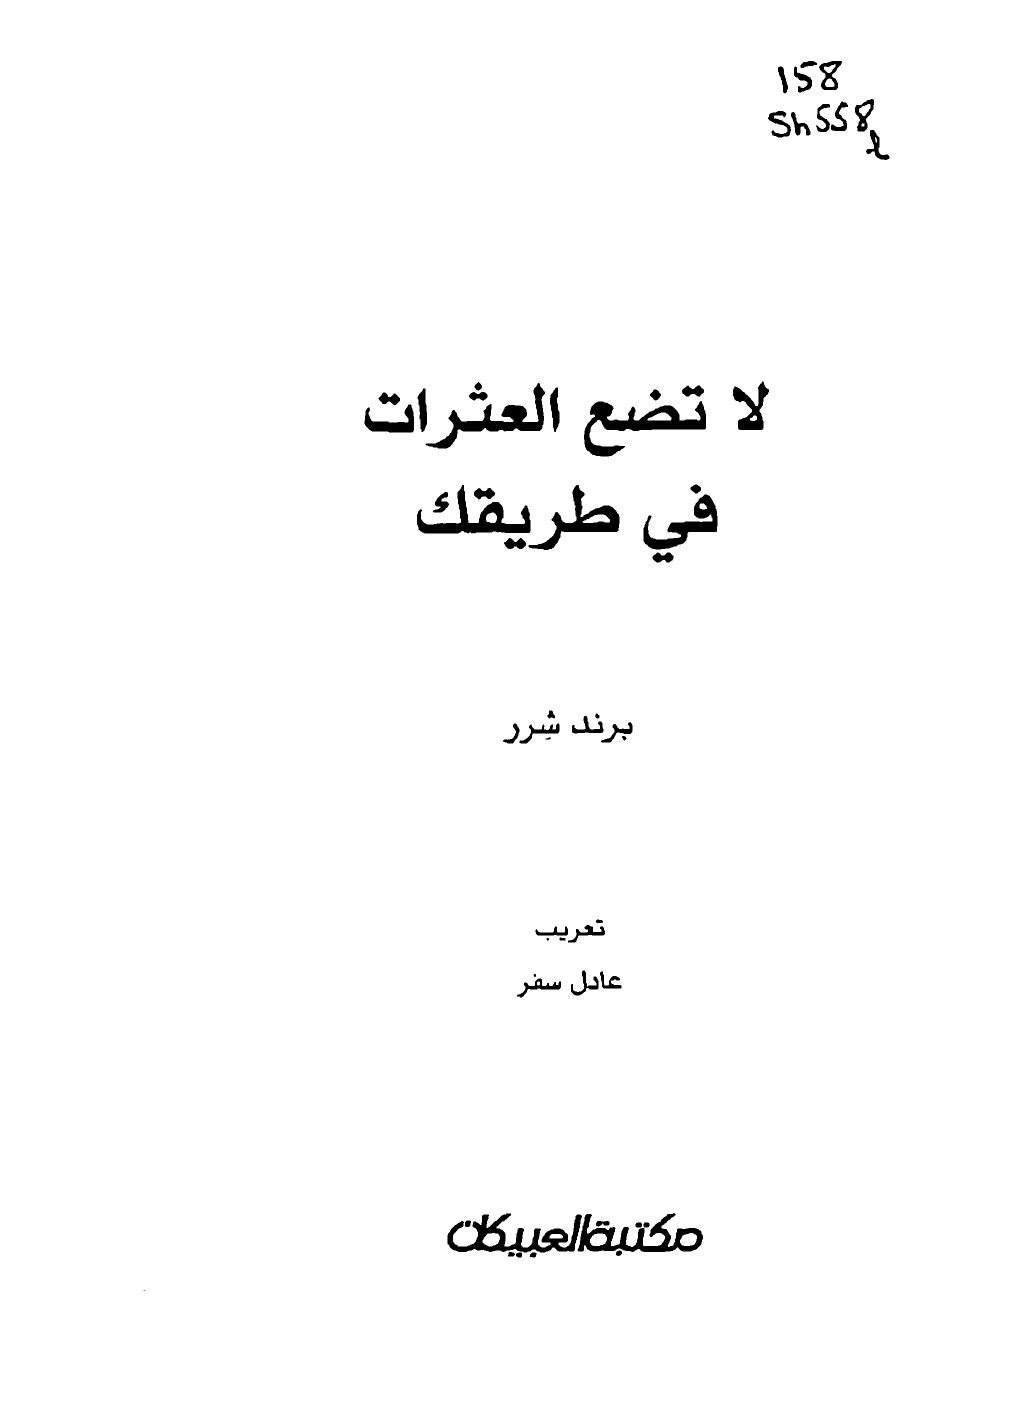 158
Sh558
l
لا تضع العثرات
في طريقك
برند شِرر
تعريب
عادل سفر
مكتبة العبيكان